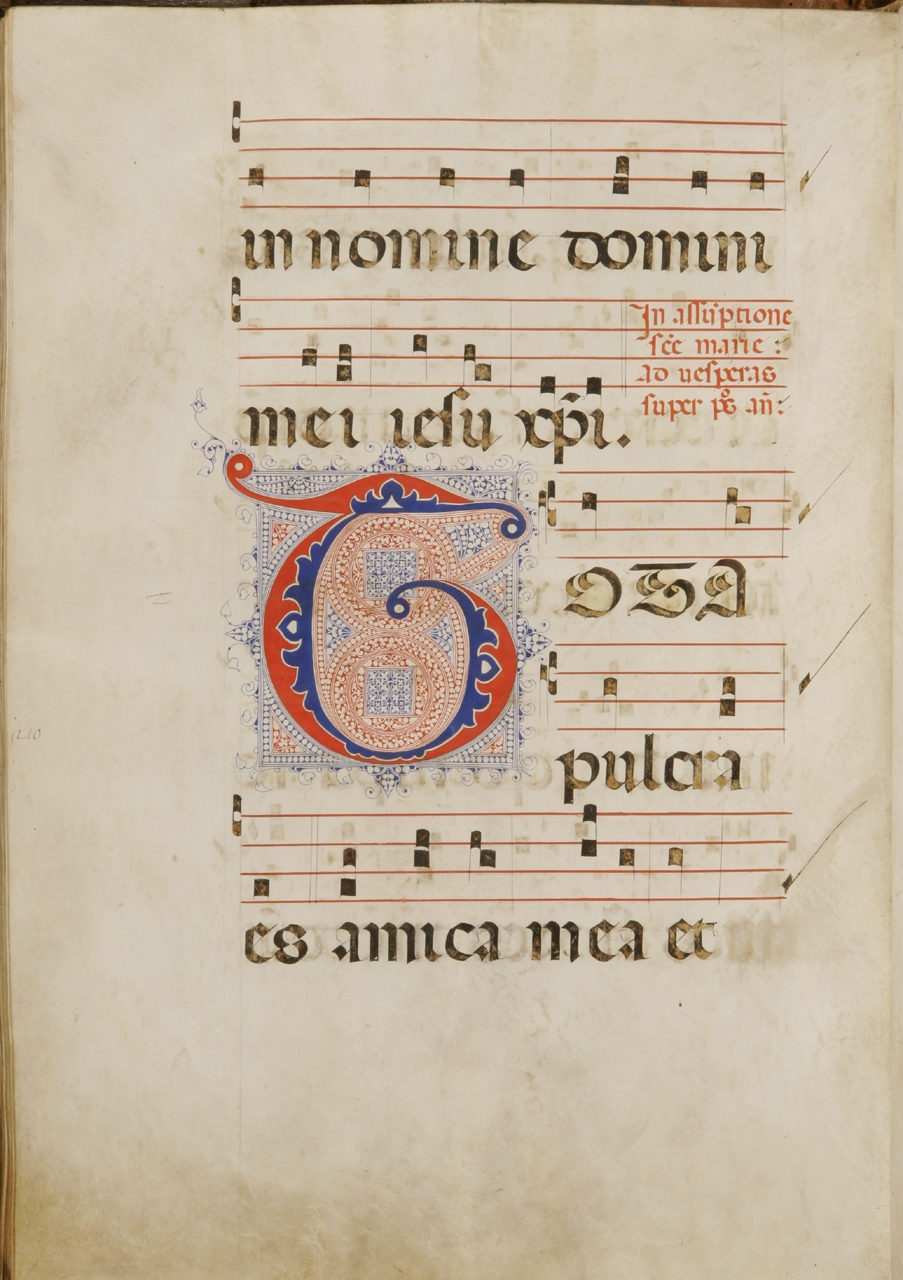 in nomine domini
mei iesu xp̄i.
In assūptione
scē marie :
ad uesperas
super ps̄ añ:
TOTA
pulcra
es amica mea et